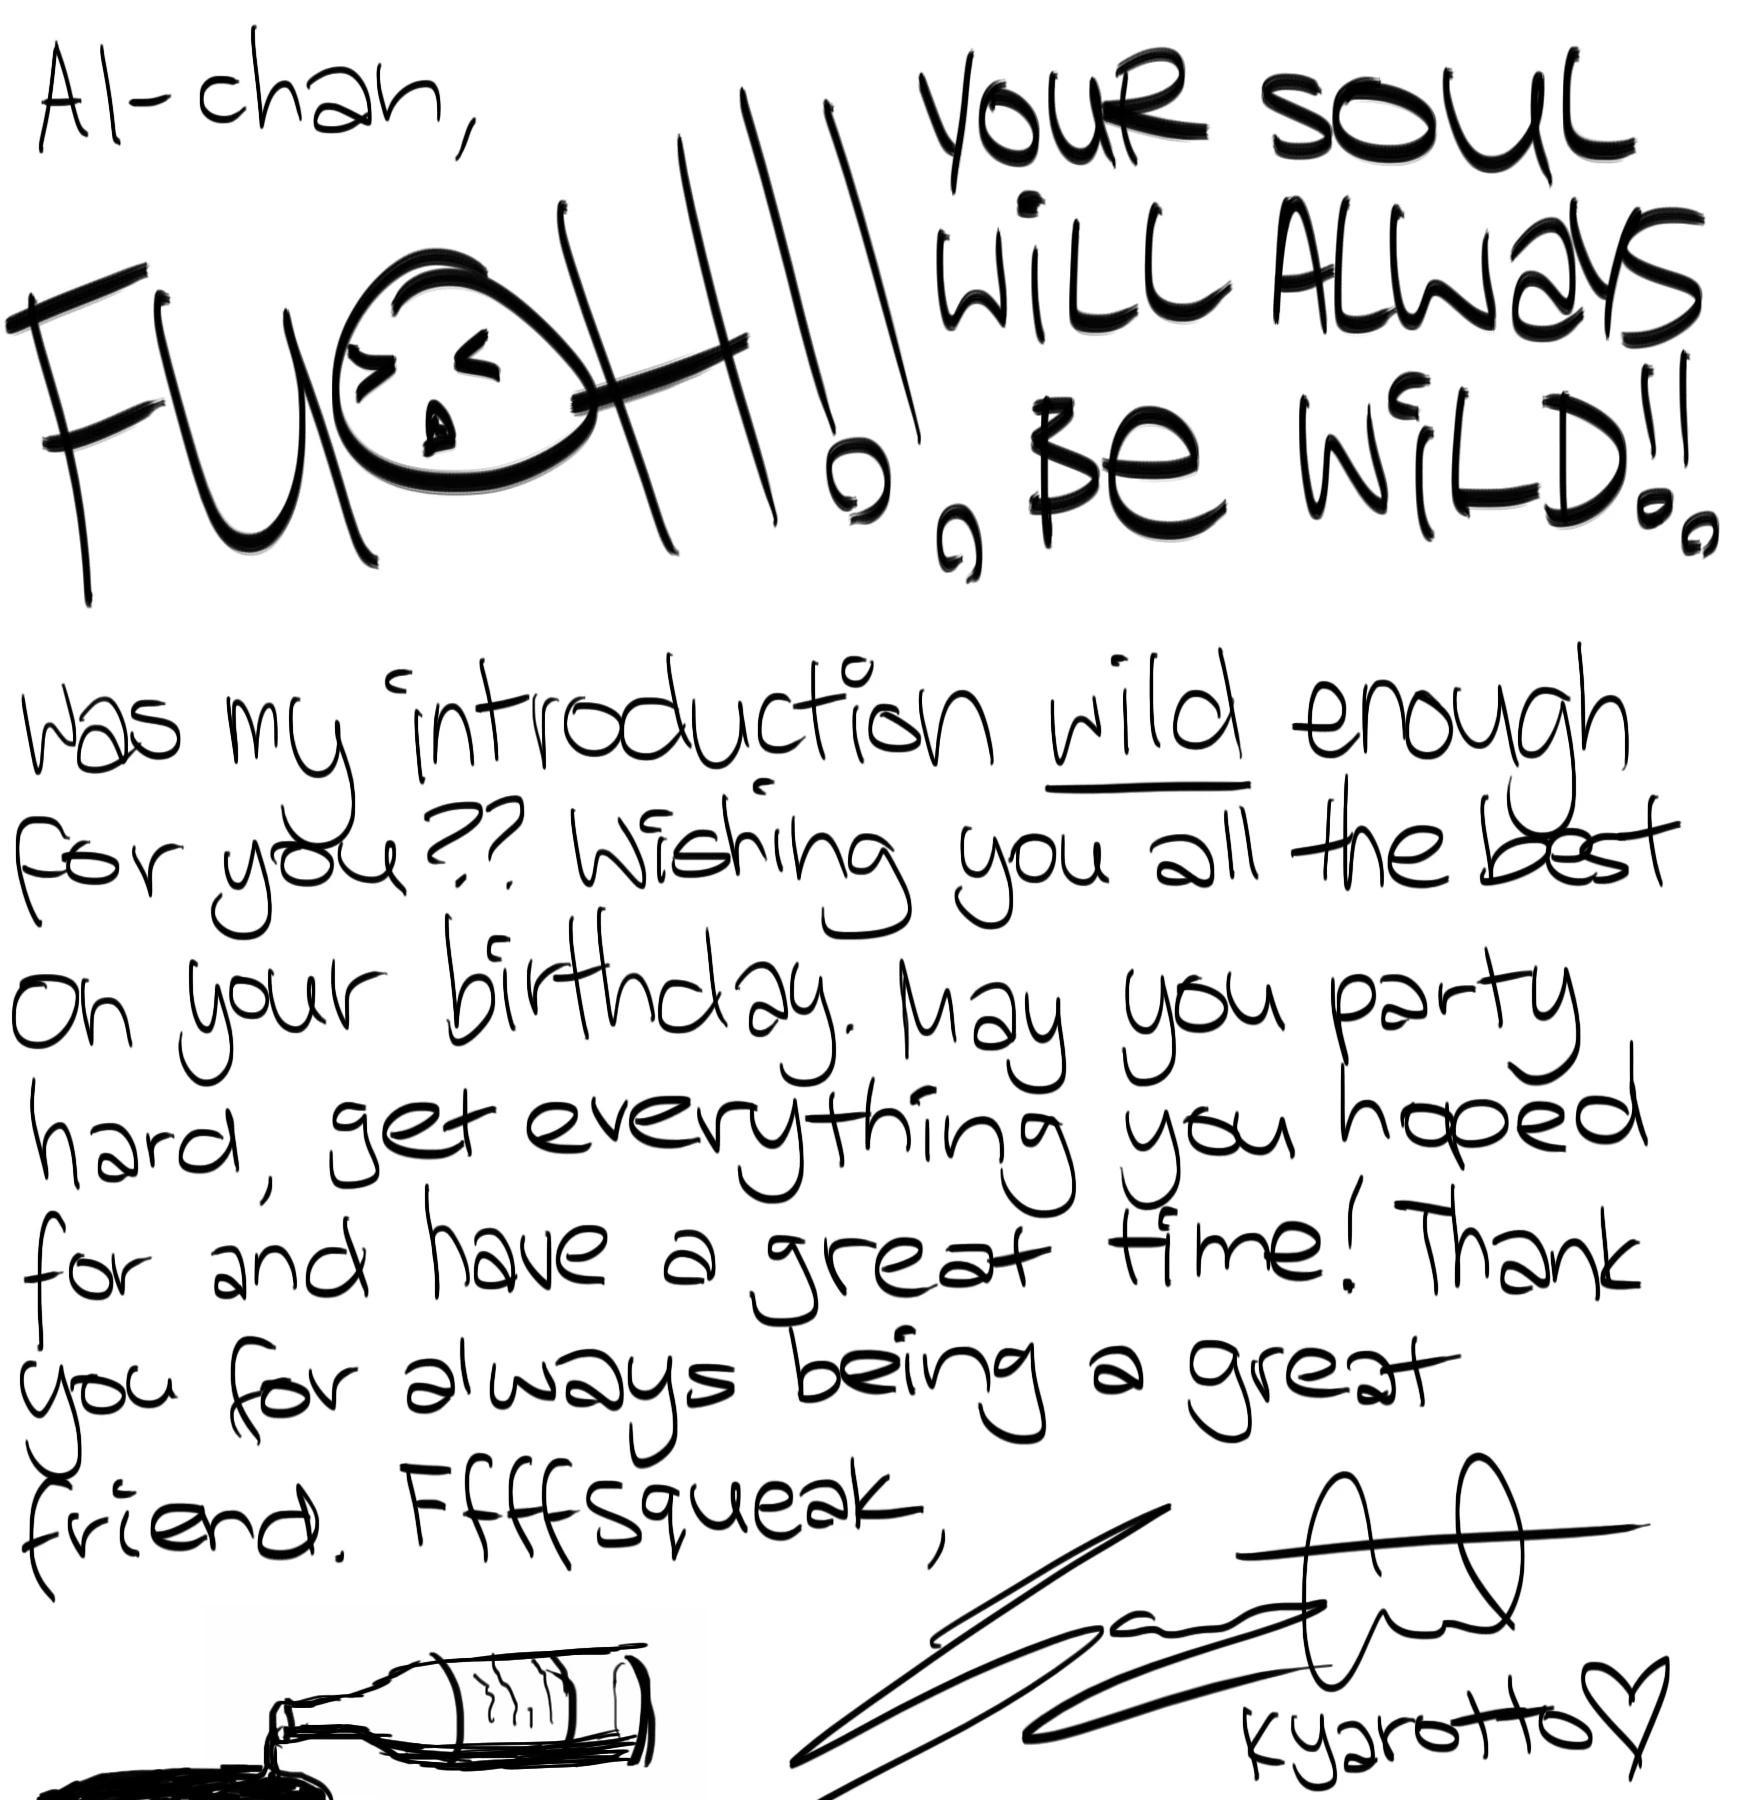 AI-chan,
FUOH!!
YOUR SOUL
WiLL ALWAYS
BE WiLD!!
Was my introduction wild enough
for you?? Wishing you all the best
on your birthday. May you party
hard, get everything you hoped
for and have a great time! Thank
you for always being a great
friend. Ffffsqueak,
kyarotto♡